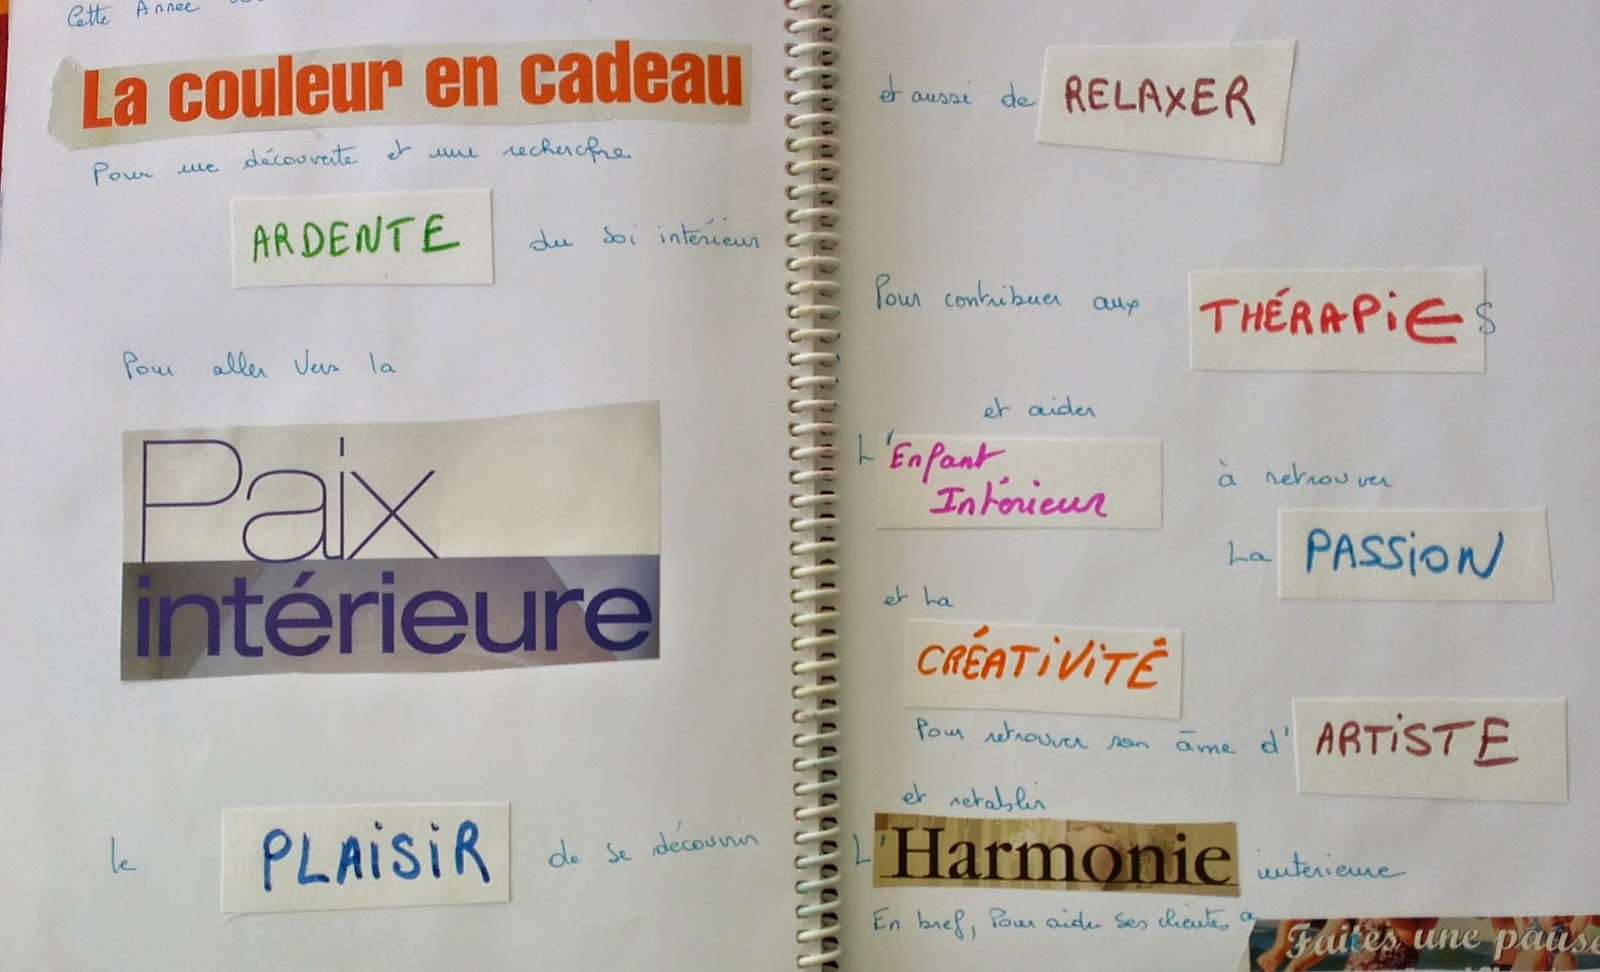 Cette Année
La couleur en cadeau
Pour une découverte et une recherche
ARDENTE du soi intérieur
Pour aller vers la
Paix
intérieure
le PLAISIR de se découvrir
et aussi de RELAXER
Pour contribuer aux THÉRAPIES
et aider
L'Enfant
Intérieur
à retrouver
La PASSION
et la
CRÉATIVITÉ
Pour retrouver son âme d'ARTISTE
et retablir
L'Harmonie interieure
En bref, Pour aider ses clientes a
Faites une pause